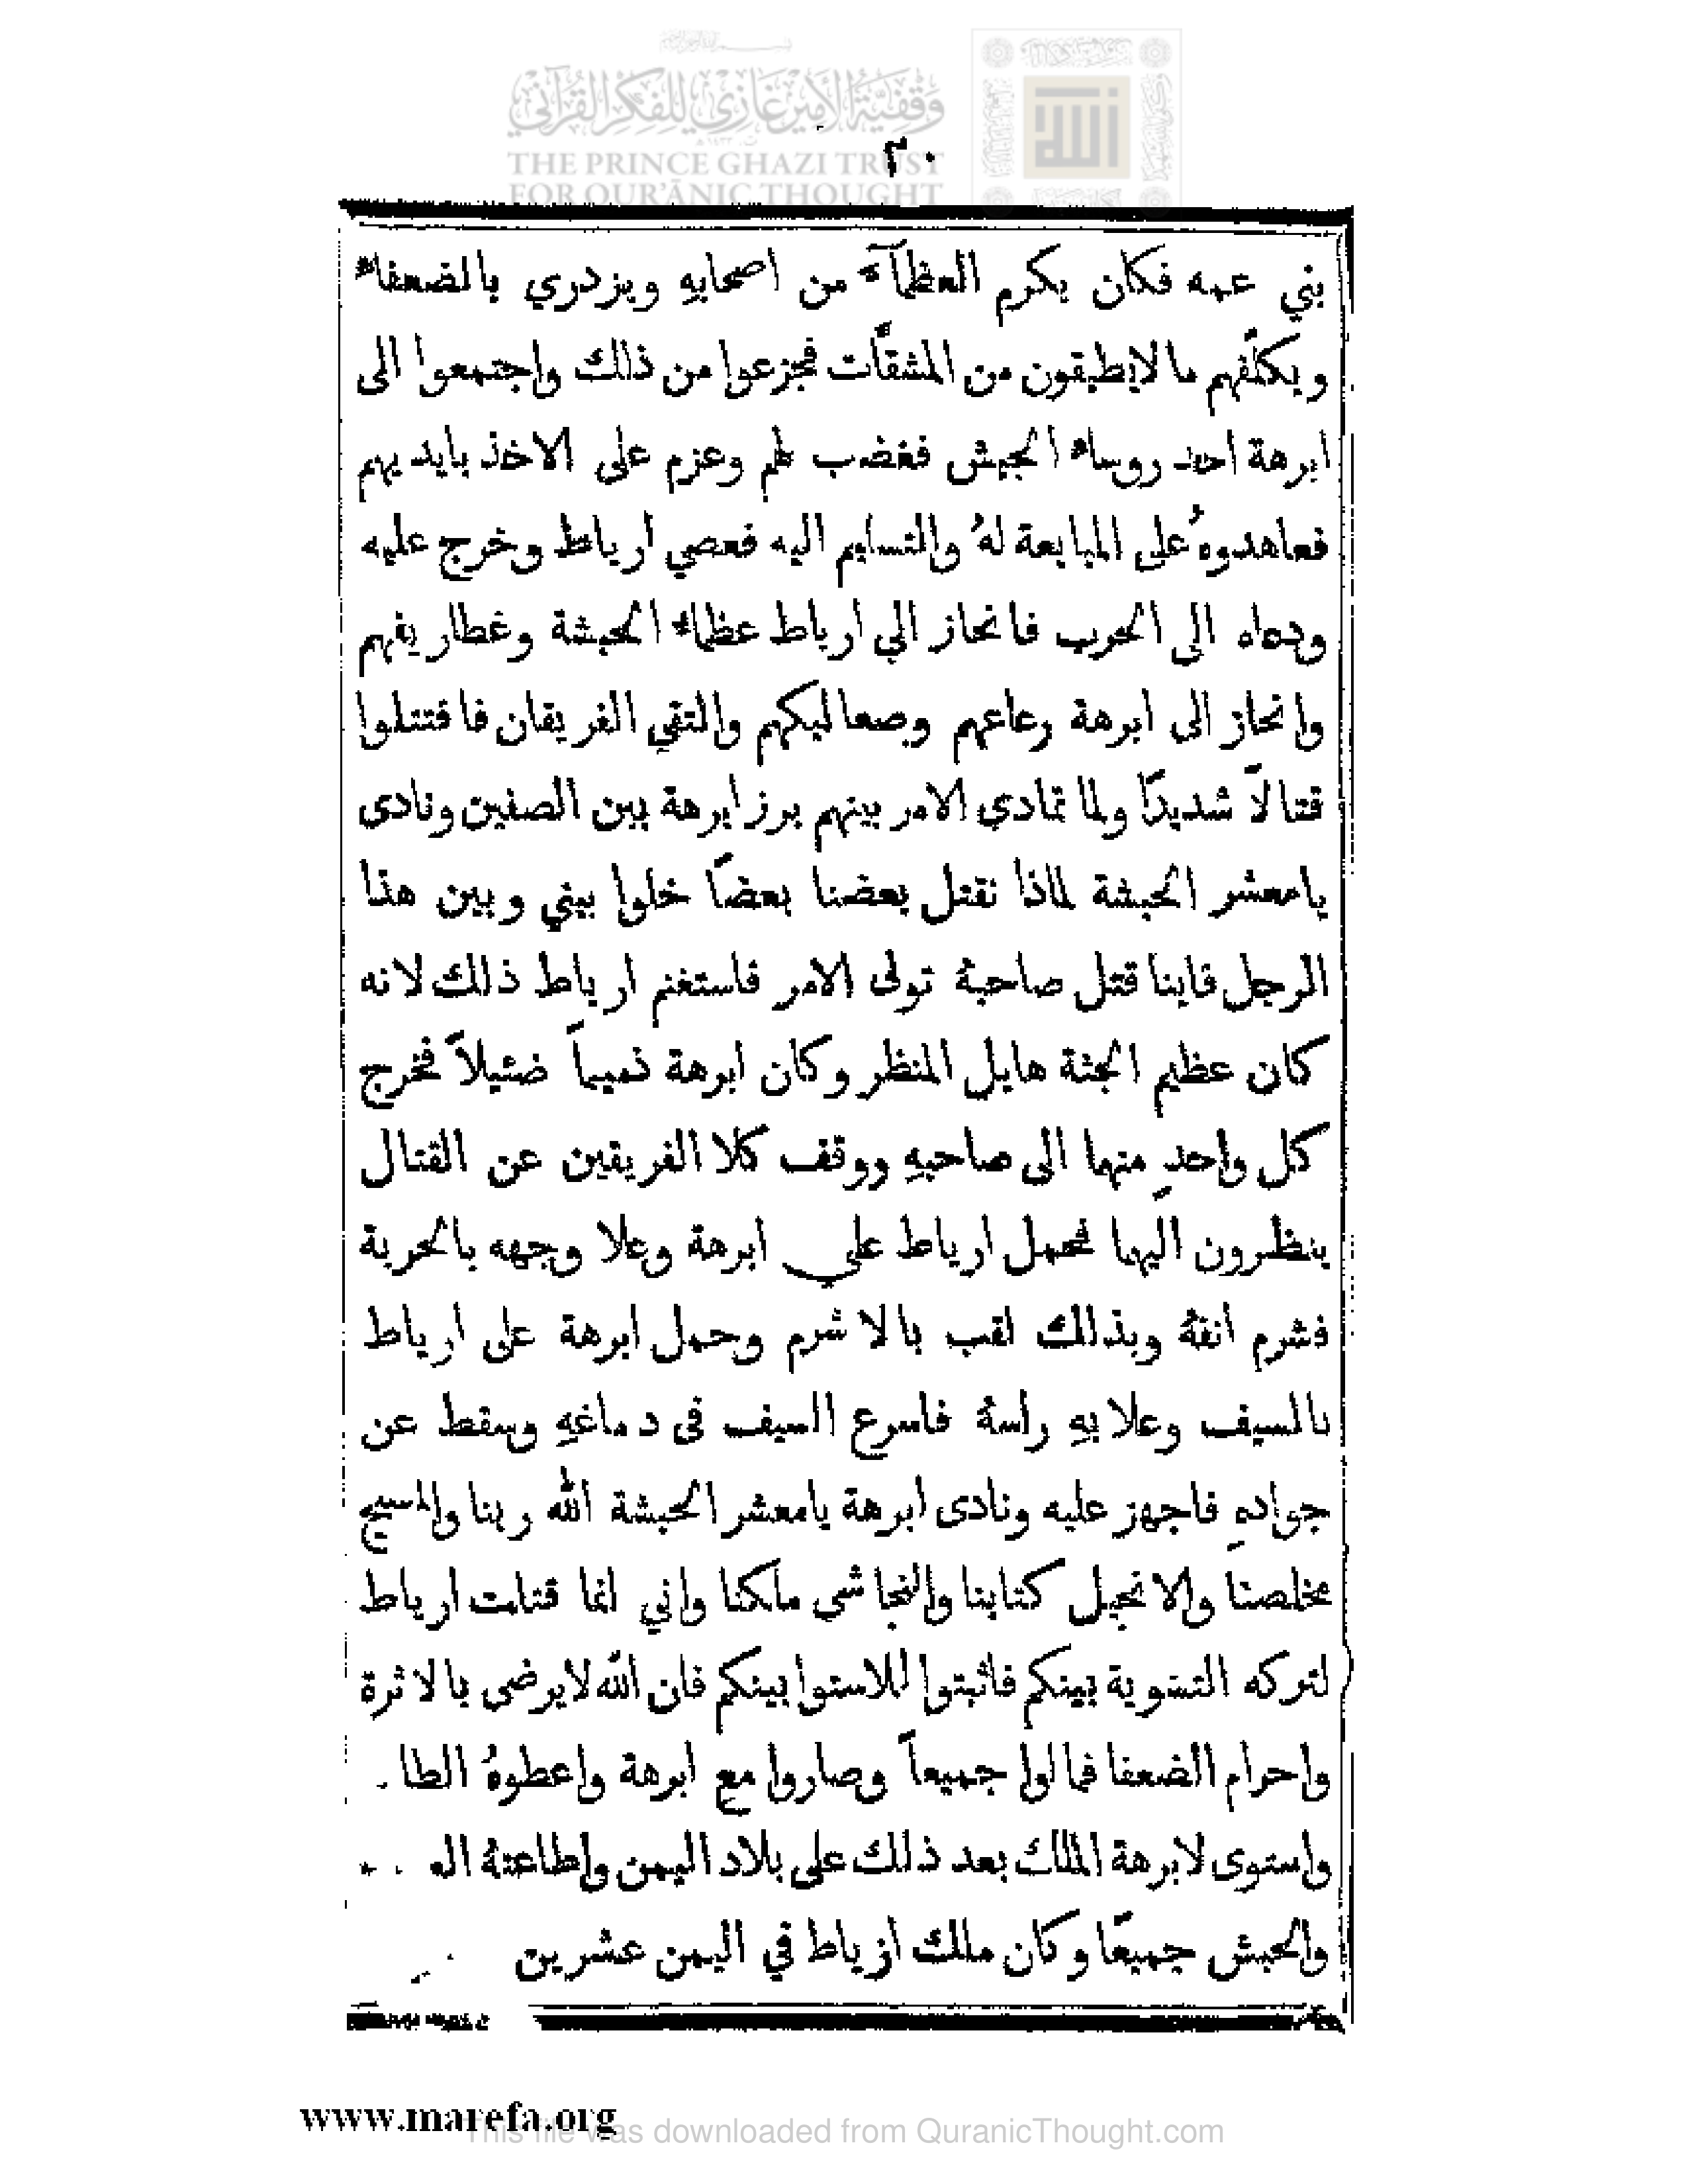 وقفية الأمير غازي للفكر القرآني
THE PRINCE GHAZI TRUST
FOR QUR'ĀNIC THOUGHT
٣٠
بني عمه فكان يكرم العظمآء من اصحابهِ ويزدري بالضعفاء
ويكلّفهم ما لايطيقون من المشقّات فجزعوا من ذلك واجتمعوا الى
ابرهة احد روساء الجيش فغضب لهم وعزم على الاخذ بايديهم
فعاهدوهُ على المبايعة لهُ والتسليم اليه فعصي ارياط وخرج عليه
ودعاه الى الحرب فانحاز الي ارياط عظماء الحبشة وغطاريفهم
وانحاز الى ابرهة رعاعهم وصعاليكهم والتقي الفريقان فاقتتلوا
قتالاً شديدًا ولما تمادي الامر بينهم برز ابرهة بين الصفين ونادى
يامعشر الحبشة لماذا نقتل بعضنا بعضًا خلوا بيني وبين هذا
الرجل فاينا قتل صاحبهُ تولى الامر فاستغنم ارياط ذلك لانه
كان عظيم الجثة هايل المنظر وكان ابرهة ذميماً ضئيلاً فخرج
كل واحدٍ منهما الى صاحبهِ ووقف كلا الفريقين عن القتال
ينظرون اليهما فحمل ارياط علي ابرهة وعلا وجهه بالحربة
فشرم انفهُ وبذلك لقب بالاشرم وحمل ابرهة على ارياط
بالسيف وعلا بهِ راسهُ فاسرع السيف فى دماغهِ وسقط عن
جوادهِ فاجهز عليه ونادى ابرهة يامعشر الحبشة الله ربنا والمسيح
مخلصنا والانجيل كتابنا والنجاشى ملكنا واني انما قتلت ارياط
لتركه التسوية بينكم فاثبتوا للاستوا بينكم فان الله لايرضى بالاثرة
واحرام الضعفا فمالوا جميعاً وصاروا مع ابرهة واعطوهُ
واستوى لابرهة الملك بعد ذلك على بلاد اليمن واطاعتهُ
والحبش جميعًا وكان ملك ارياط في اليمن عشرين
www.marefa.org
This file was downloaded from QuranicThought.com